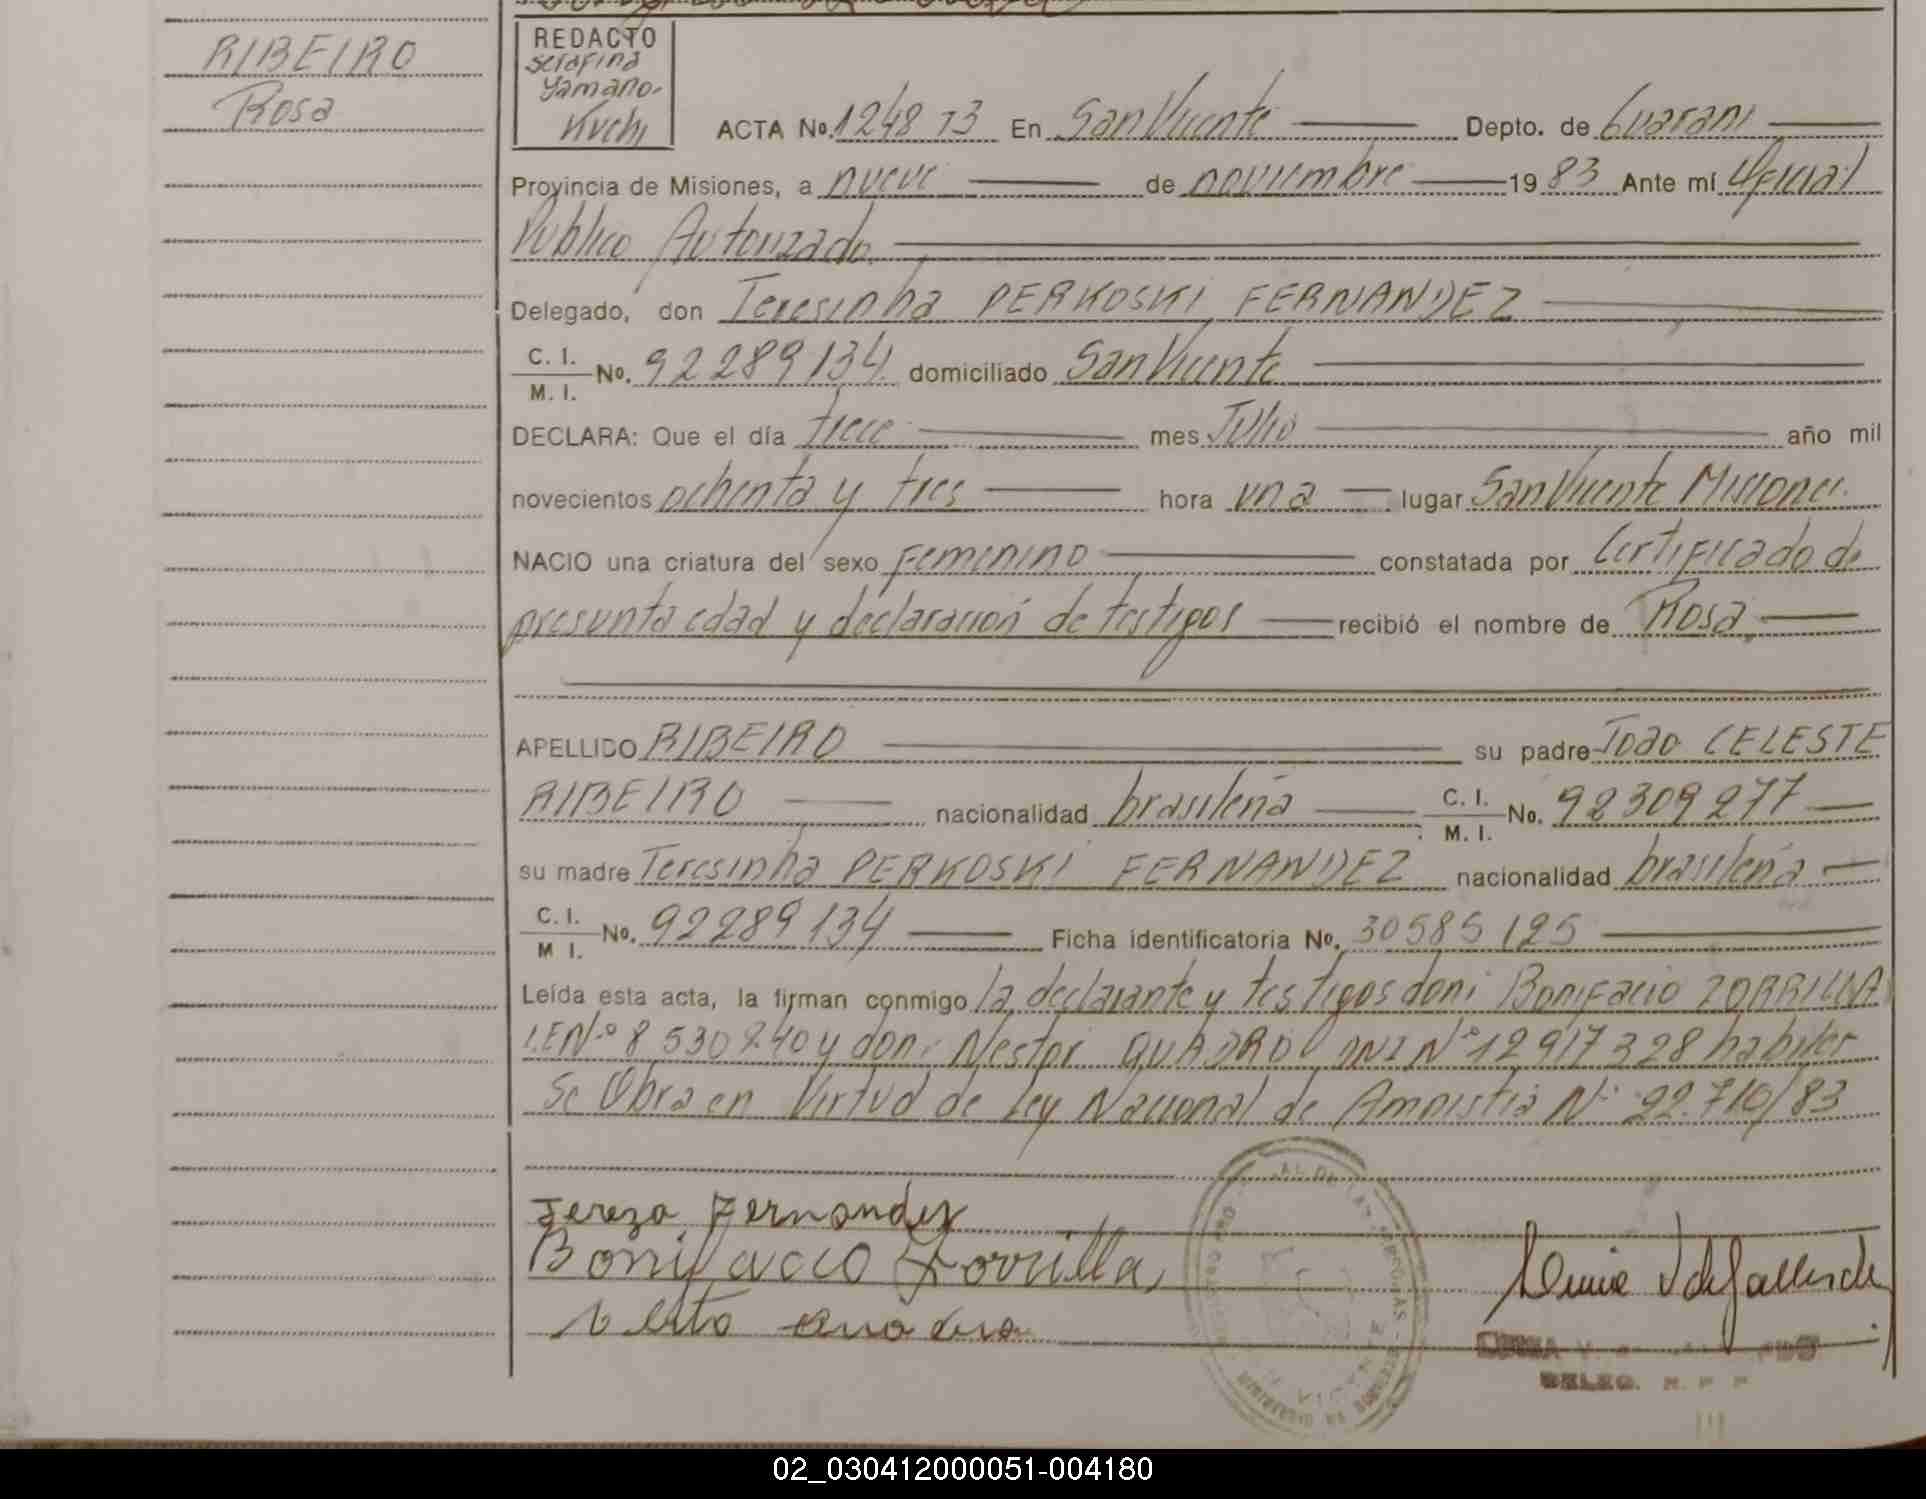 RIBEIRO
Rosa
REDACTO
Serafina
Yamano-
Kuchi
ACTA No. 1248 T3 En San Vicente Depto. de Guarani
Provincia de Misiones, a nueve de noviembre 19 83 Ante mí Oficial
Publico Autorizado.
Delegado, don Teresinha PERKOSKI FERNANDEZ
C. I.
M. I. No. 92289134 domiciliado San Vicente
DECLARA: Que el día trece mes Julio año mil
novecientos ochenta y tres hora una lugar San Vicente Misiones.
NACIO una criatura del sexo Femenino constatada por Certificado de
presunta edad y declaración de testigos recibió el nombre de Rosa
APELLIDO RIBEIRO su padre Joao CELESTE
RIBEIRO nacionalidad brasileña C. I.
M. I. No. 92309277
su madre Teresinha PERKOSKI FERNANDEZ nacionalidad brasileña
C. I.
M I. No. 92289134 Ficha identificatoria No. 30585125
Leída esta acta, la firman conmigo la declarante y testigos don: Bonifacio ZORRILLA
L.E.Nº 8530240 y don: Nestor QUADRO DNI Nº 12917328 habiles
Se Obra en Virtud de Ley Nacional de Amnistia Nº 22.710/83
Tereza Fernandez
Bonifacio Zorrilla
DELEG. R. P. P.
02_030412000051-004180